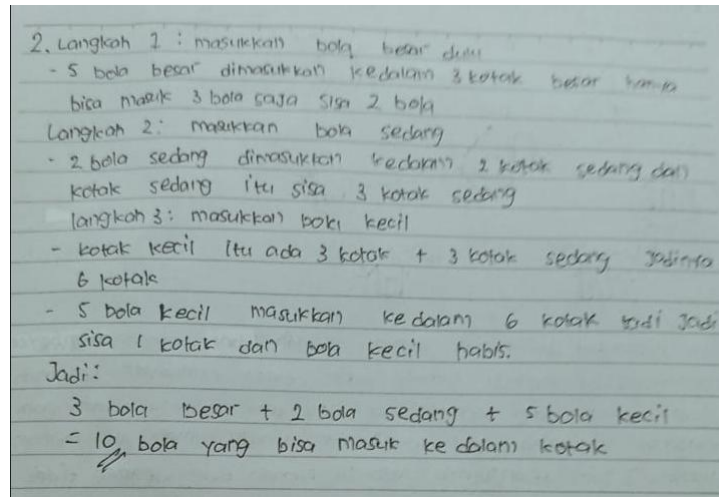 2. Langkah 1 : masukkan bola besar dulu
- 5 bola besar dimasukkan kedalam 3 kotak besar hanya
bisa masuk 3 bola saja sisa 2 bola
Langkah 2: masukkan bola sedang
- 2 bola sedang dimasukkan kedalam 2 kotak sedang dan
kotak sedang itu sisa 3 kotak sedang
langkah 3: masukkan bola kecil
- kotak kecil itu ada 3 kotak + 3 kotak sedang jadinya
6 kotak
- 5 bola kecil masukkan ke dalam 6 kotak tadi jadi
sisa 1 kotak dan bola kecil habis.
Jadi:
3 bola besar + 2 bola sedang + 5 bola kecil
= 10 bola yang bisa masuk ke dalam kotak